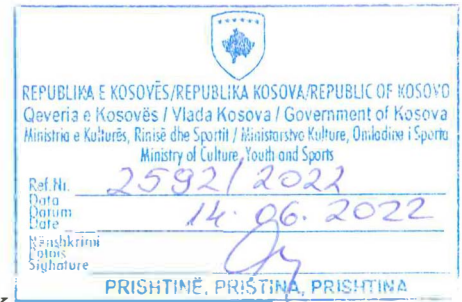 REPUBLIKA E KOSOVËS/REPUBLIKA KOSOVA/REPUBLIC OF KOSOVO
Qeveria e Kosovës / Vlada Kosova / Government of Kosova
Ministria e Kulturës, Rinisë dhe Sportit / Ministarstvo Kulture, Omladine i Sporta
Ministry of Culture, Youth and Sports
Ref.Nr. 2592/2022
Data
Datum
Date 14.06.2022
Nënshkrimi
Potpis
Signature
PRISHTINË, PRIŠTINA, PRISHTINA